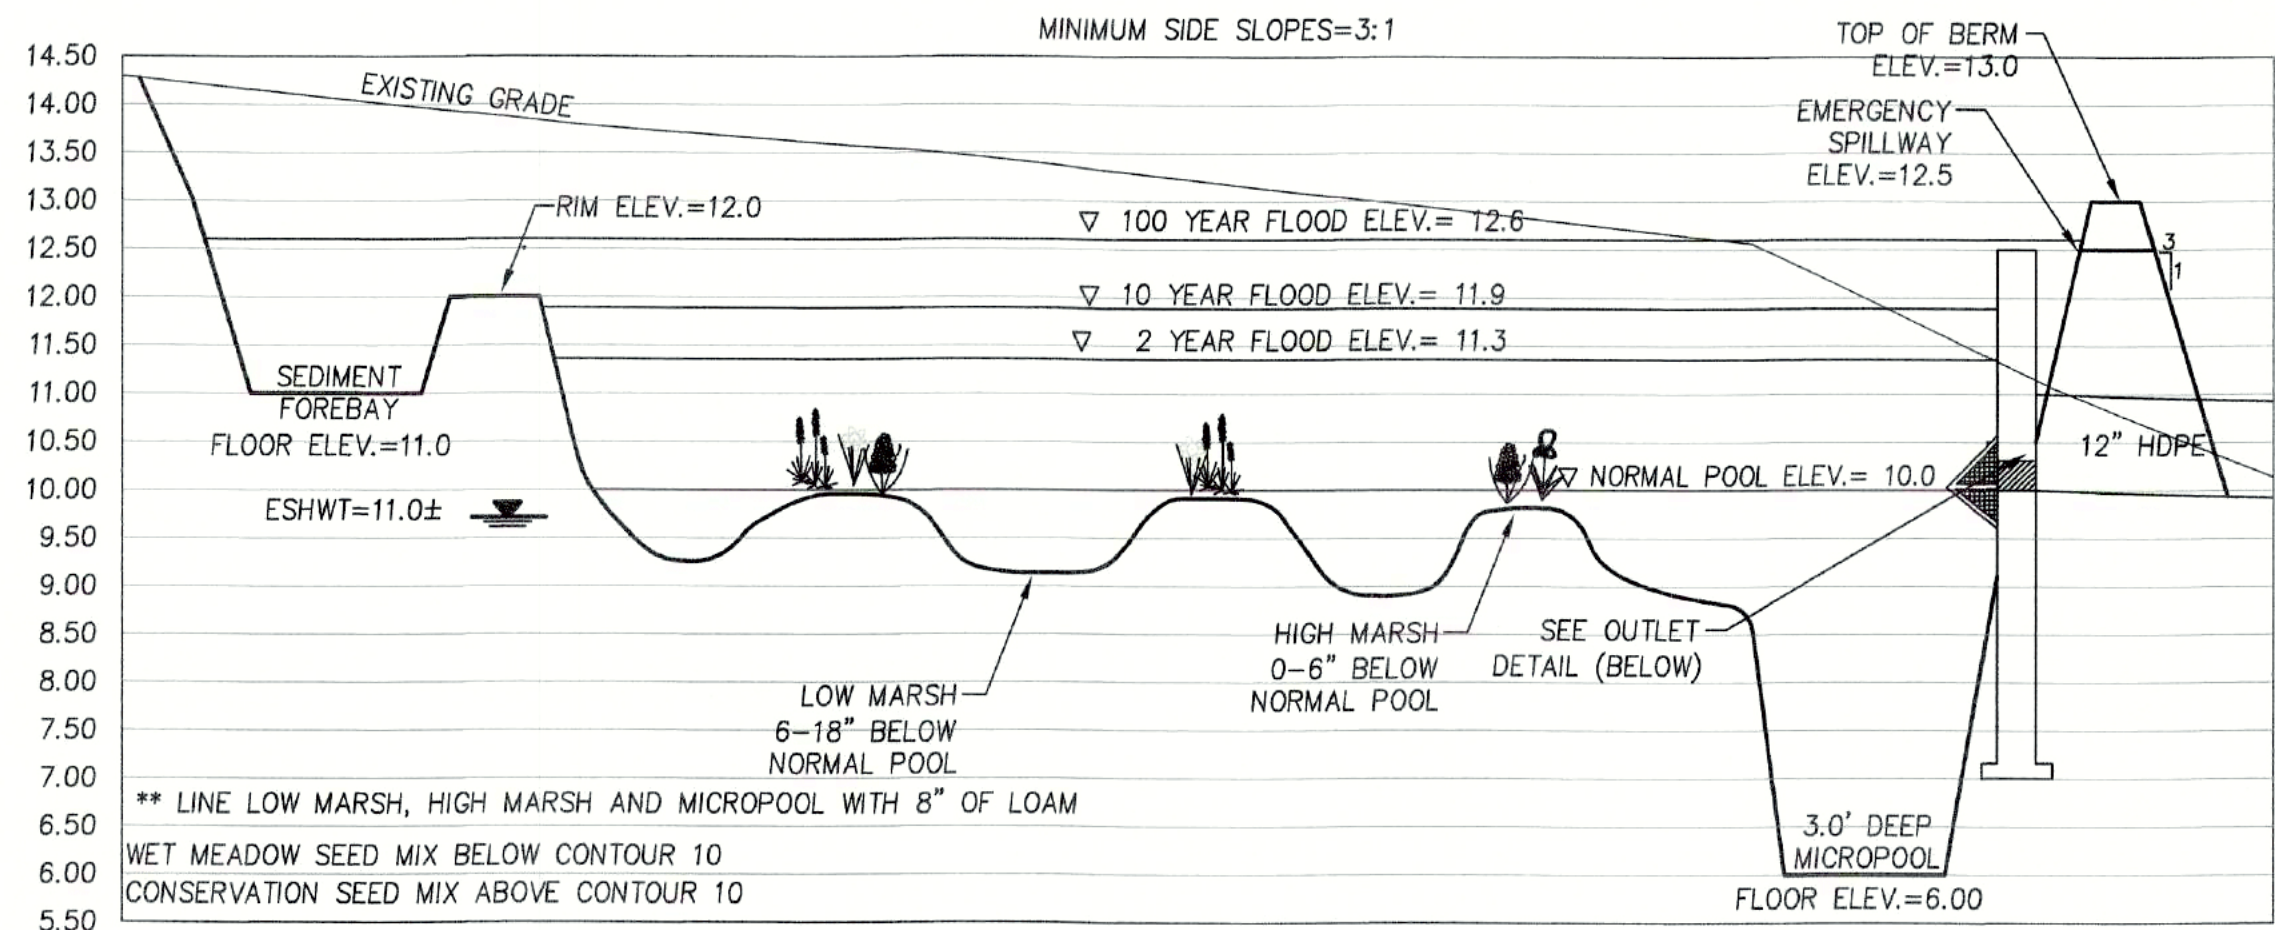 MINIMUM SIDE SLOPES=3:1
TOP OF BERM
ELEV.=13.0
EMERGENCY
SPILLWAY
ELEV.=12.5
14.50
14.00
13.50
13.00
12.50
12.00
11.50
11.00
10.50
10.00
9.50
9.00
8.50
8.00
7.50
7.00
6.50
6.00
5.50
EXISTING GRADE
RIM ELEV.=12.0
100 YEAR FLOOD ELEV.= 12.6
10 YEAR FLOOD ELEV.= 11.9
2 YEAR FLOOD ELEV.= 11.3
3
1
SEDIMENT
FOREBAY
FLOOR ELEV.=11.0
ESHWT=11.0±
NORMAL POOL ELEV.= 10.0
12" HDPE
LOW MARSH
6-18" BELOW
NORMAL POOL
HIGH MARSH
0-6" BELOW
NORMAL POOL
SEE OUTLET
DETAIL (BELOW)
** LINE LOW MARSH, HIGH MARSH AND MICROPOOL WITH 8" OF LOAM
WET MEADOW SEED MIX BELOW CONTOUR 10
CONSERVATION SEED MIX ABOVE CONTOUR 10
3.0' DEEP
MICROPOOL
FLOOR ELEV.=6.00